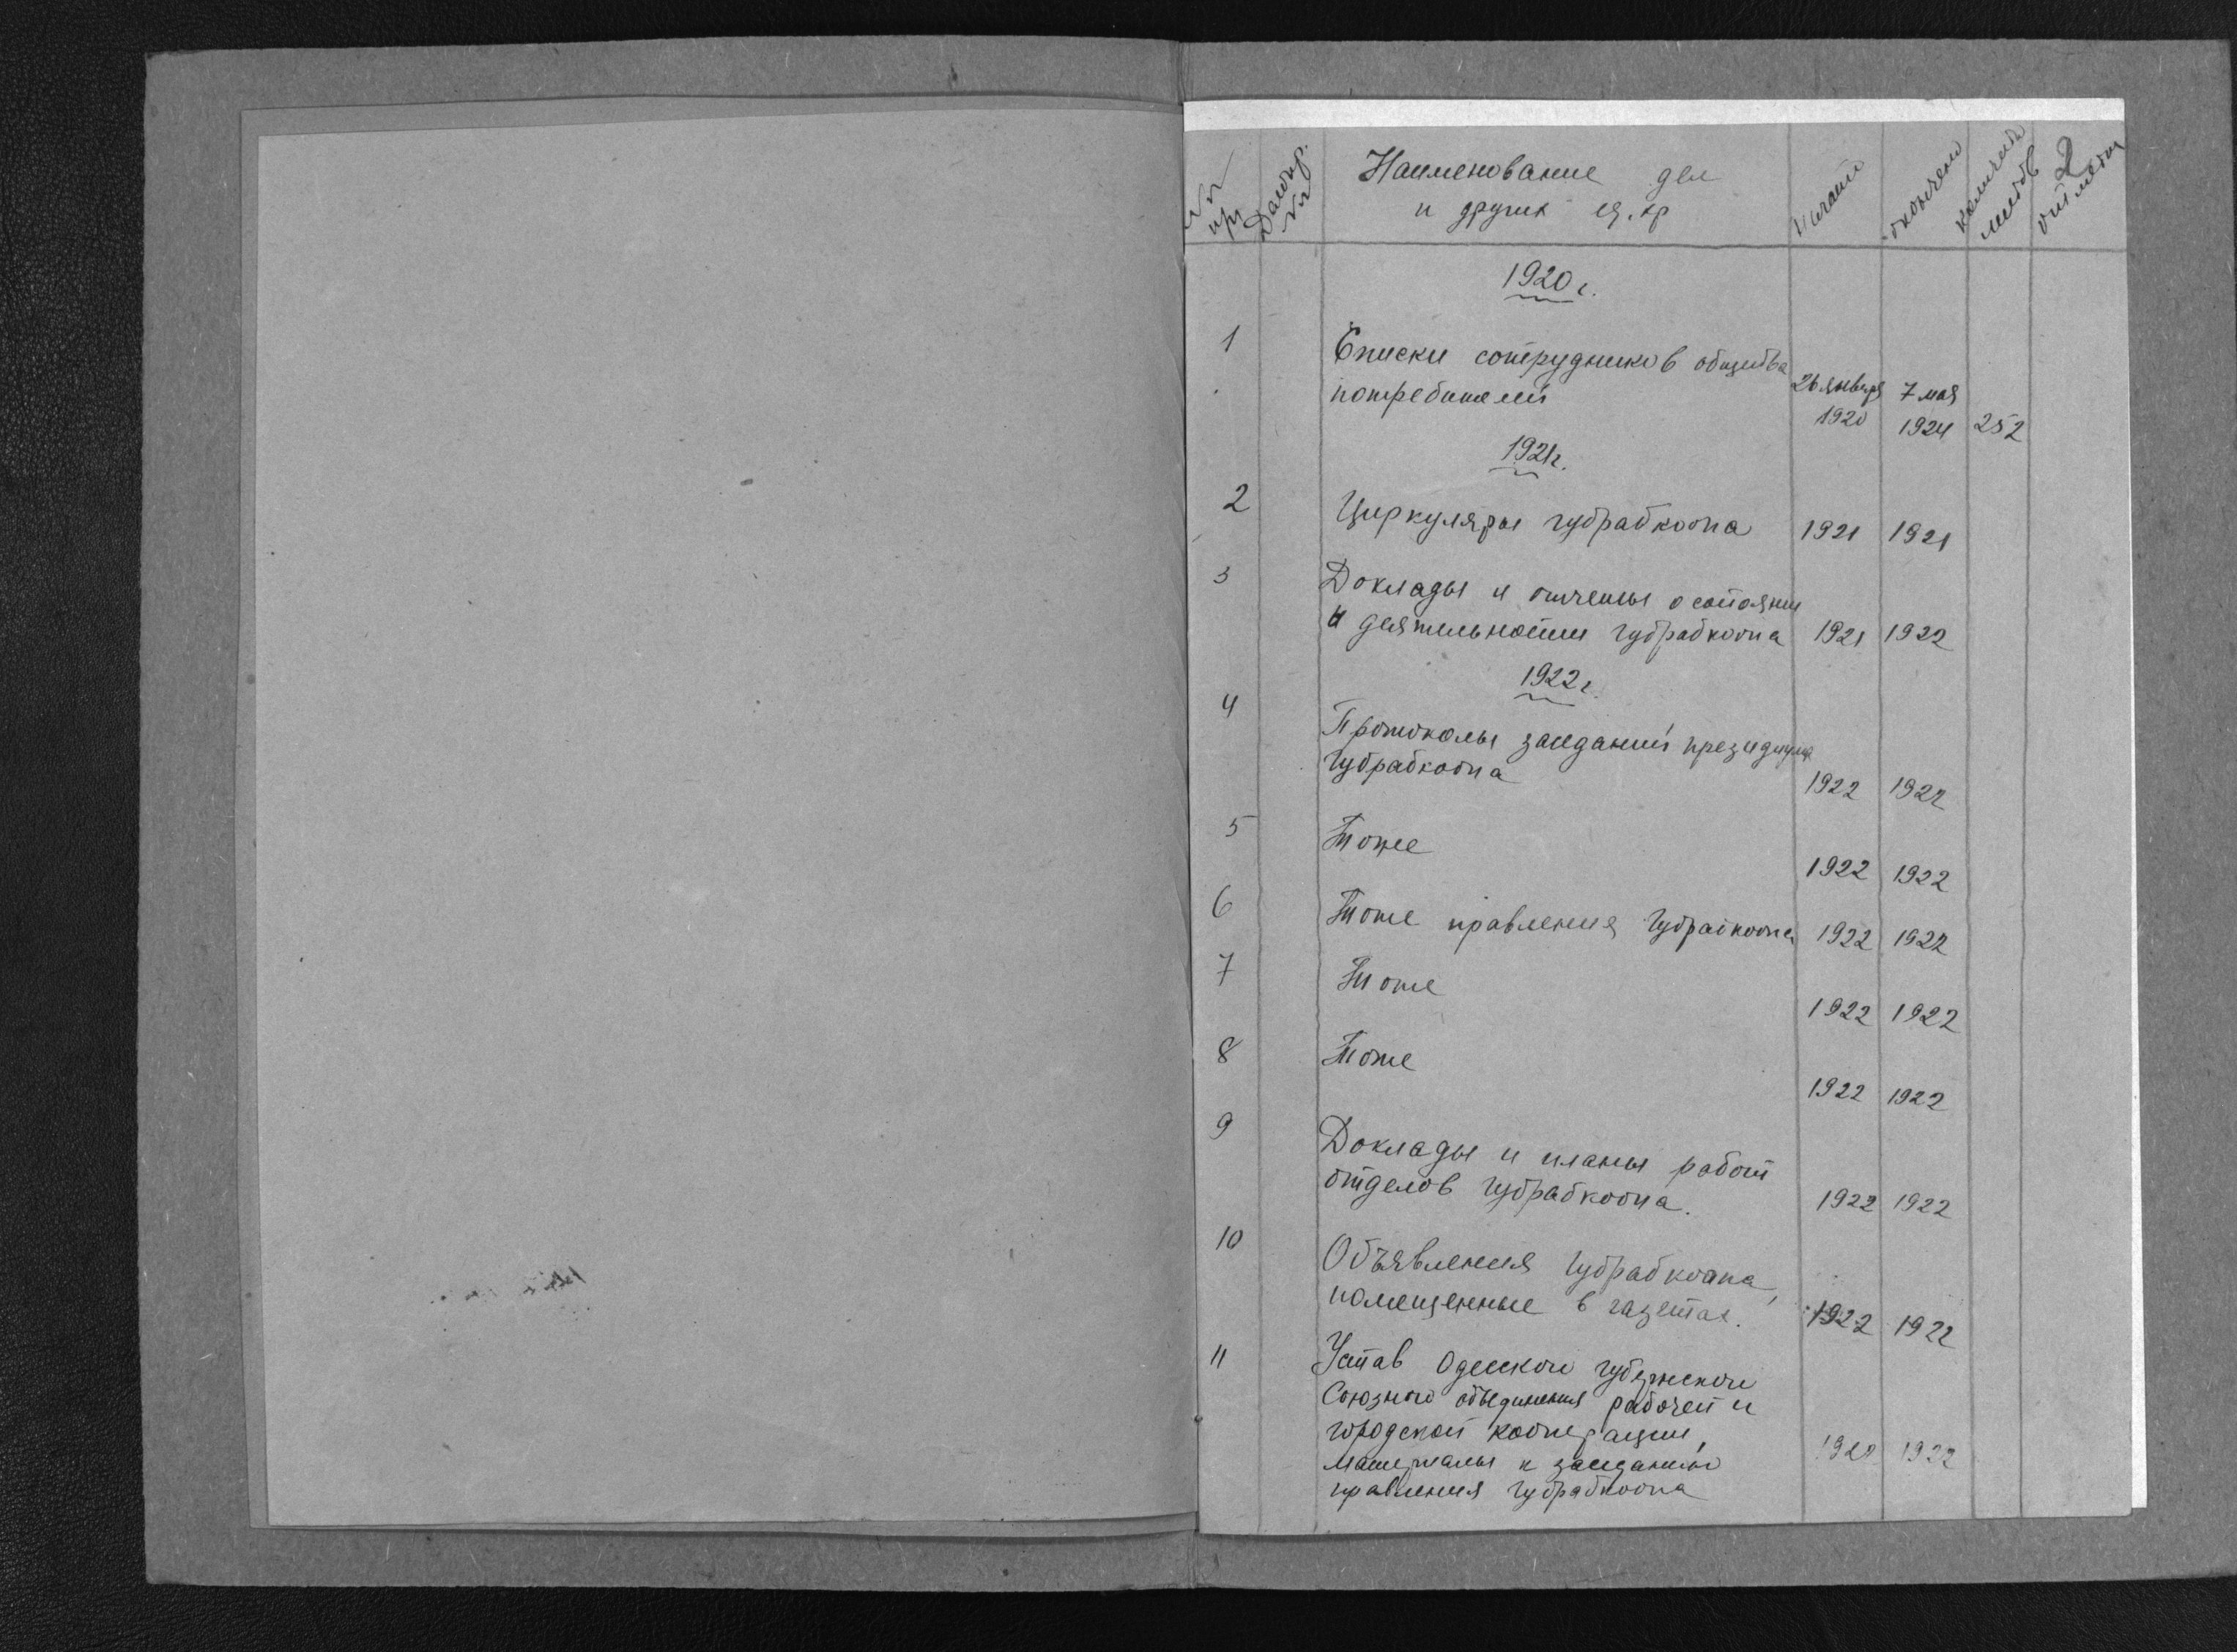 №№ п/п
Наименование дел
и других ед. хр
Начато
окончено
количеств листов
2
отметки
1920 г.
1 Списки сотрудников общества
потребителей 26 января 7 мая
1920 1924 252
1921 г.
2 Циркуляры губрабкоопа 1921 1921
3 Доклады и отчеты о состоянии
и деятельности губрабкоопа 1921 1922
1922 г.
4 Протоколы заседаний президиума
Губрабкоопа 1922 1922
5 Тоже 1922 1922
6 Тоже правления Губрабкоопа 1922 1922
7 Тоже 1922 1922
8 Тоже 1922 1922
9 Доклады и планы работ
отделов Губрабкоопа. 1922 1922
10 Объявления Губрабкоопа,
помещенные в газетах. 1922 1922
11 Устав Одесского губернского
Союзного объединения рабочей и
городской кооперации,
материалы к заседанию 1922
правления губрабкоопа